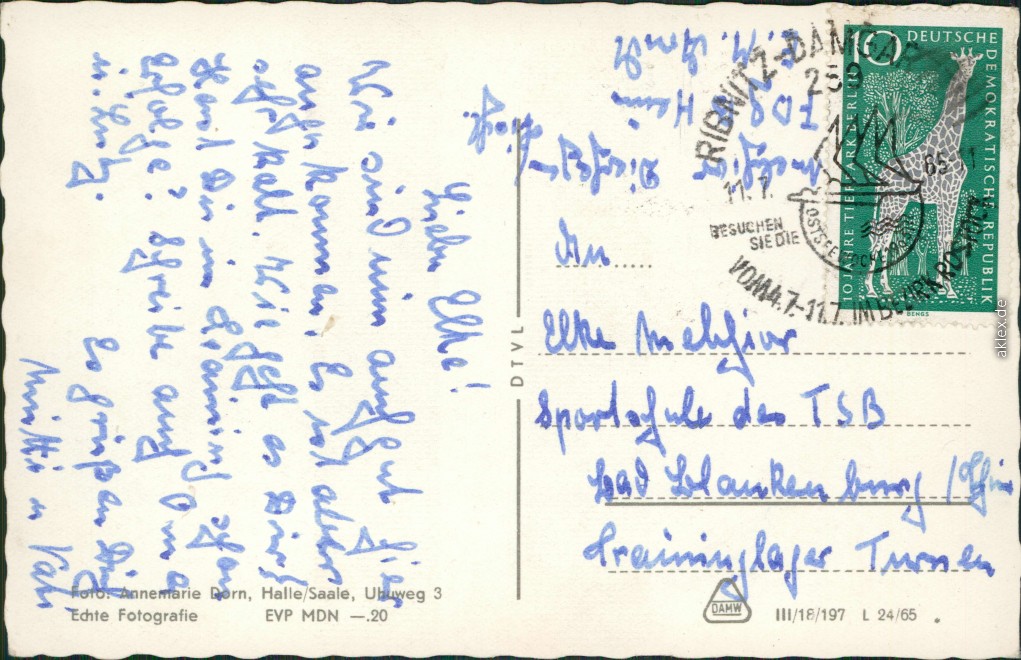 Liebe Elke!
Wir sind nun auch gut hier
angekommen. Es ist aber
oft kalt. Wie geht es Dir?
Hast Du im Training schon
Erfolge? Schreibe auch Oma
u. Lutz.
Es grüßen Dich
Mutti u. Vati
DTVL
An.....
Elke Melchior
Sportschule des TSB
Bad Blankenburg /Thür
Trainingslager Turnen
RIBNITZ-DAMGAR
259
11.7.
65
BESUCHEN
SIE DIE
OSTSEEWOCHE
VOM 4.7.-11.7. IM BEZIRK ROSTOCK
10 DEUTSCHE
DEMOKRATISCHE REPUBLIK
10 JAHRE TIERPARK BERLIN
BENGS
Foto: Annemarie Dorn, Halle/Saale, Uhuweg 3
Echte Fotografie EVP MDN —.20
DAMW
III/18/197 L 24/65
aklex.de